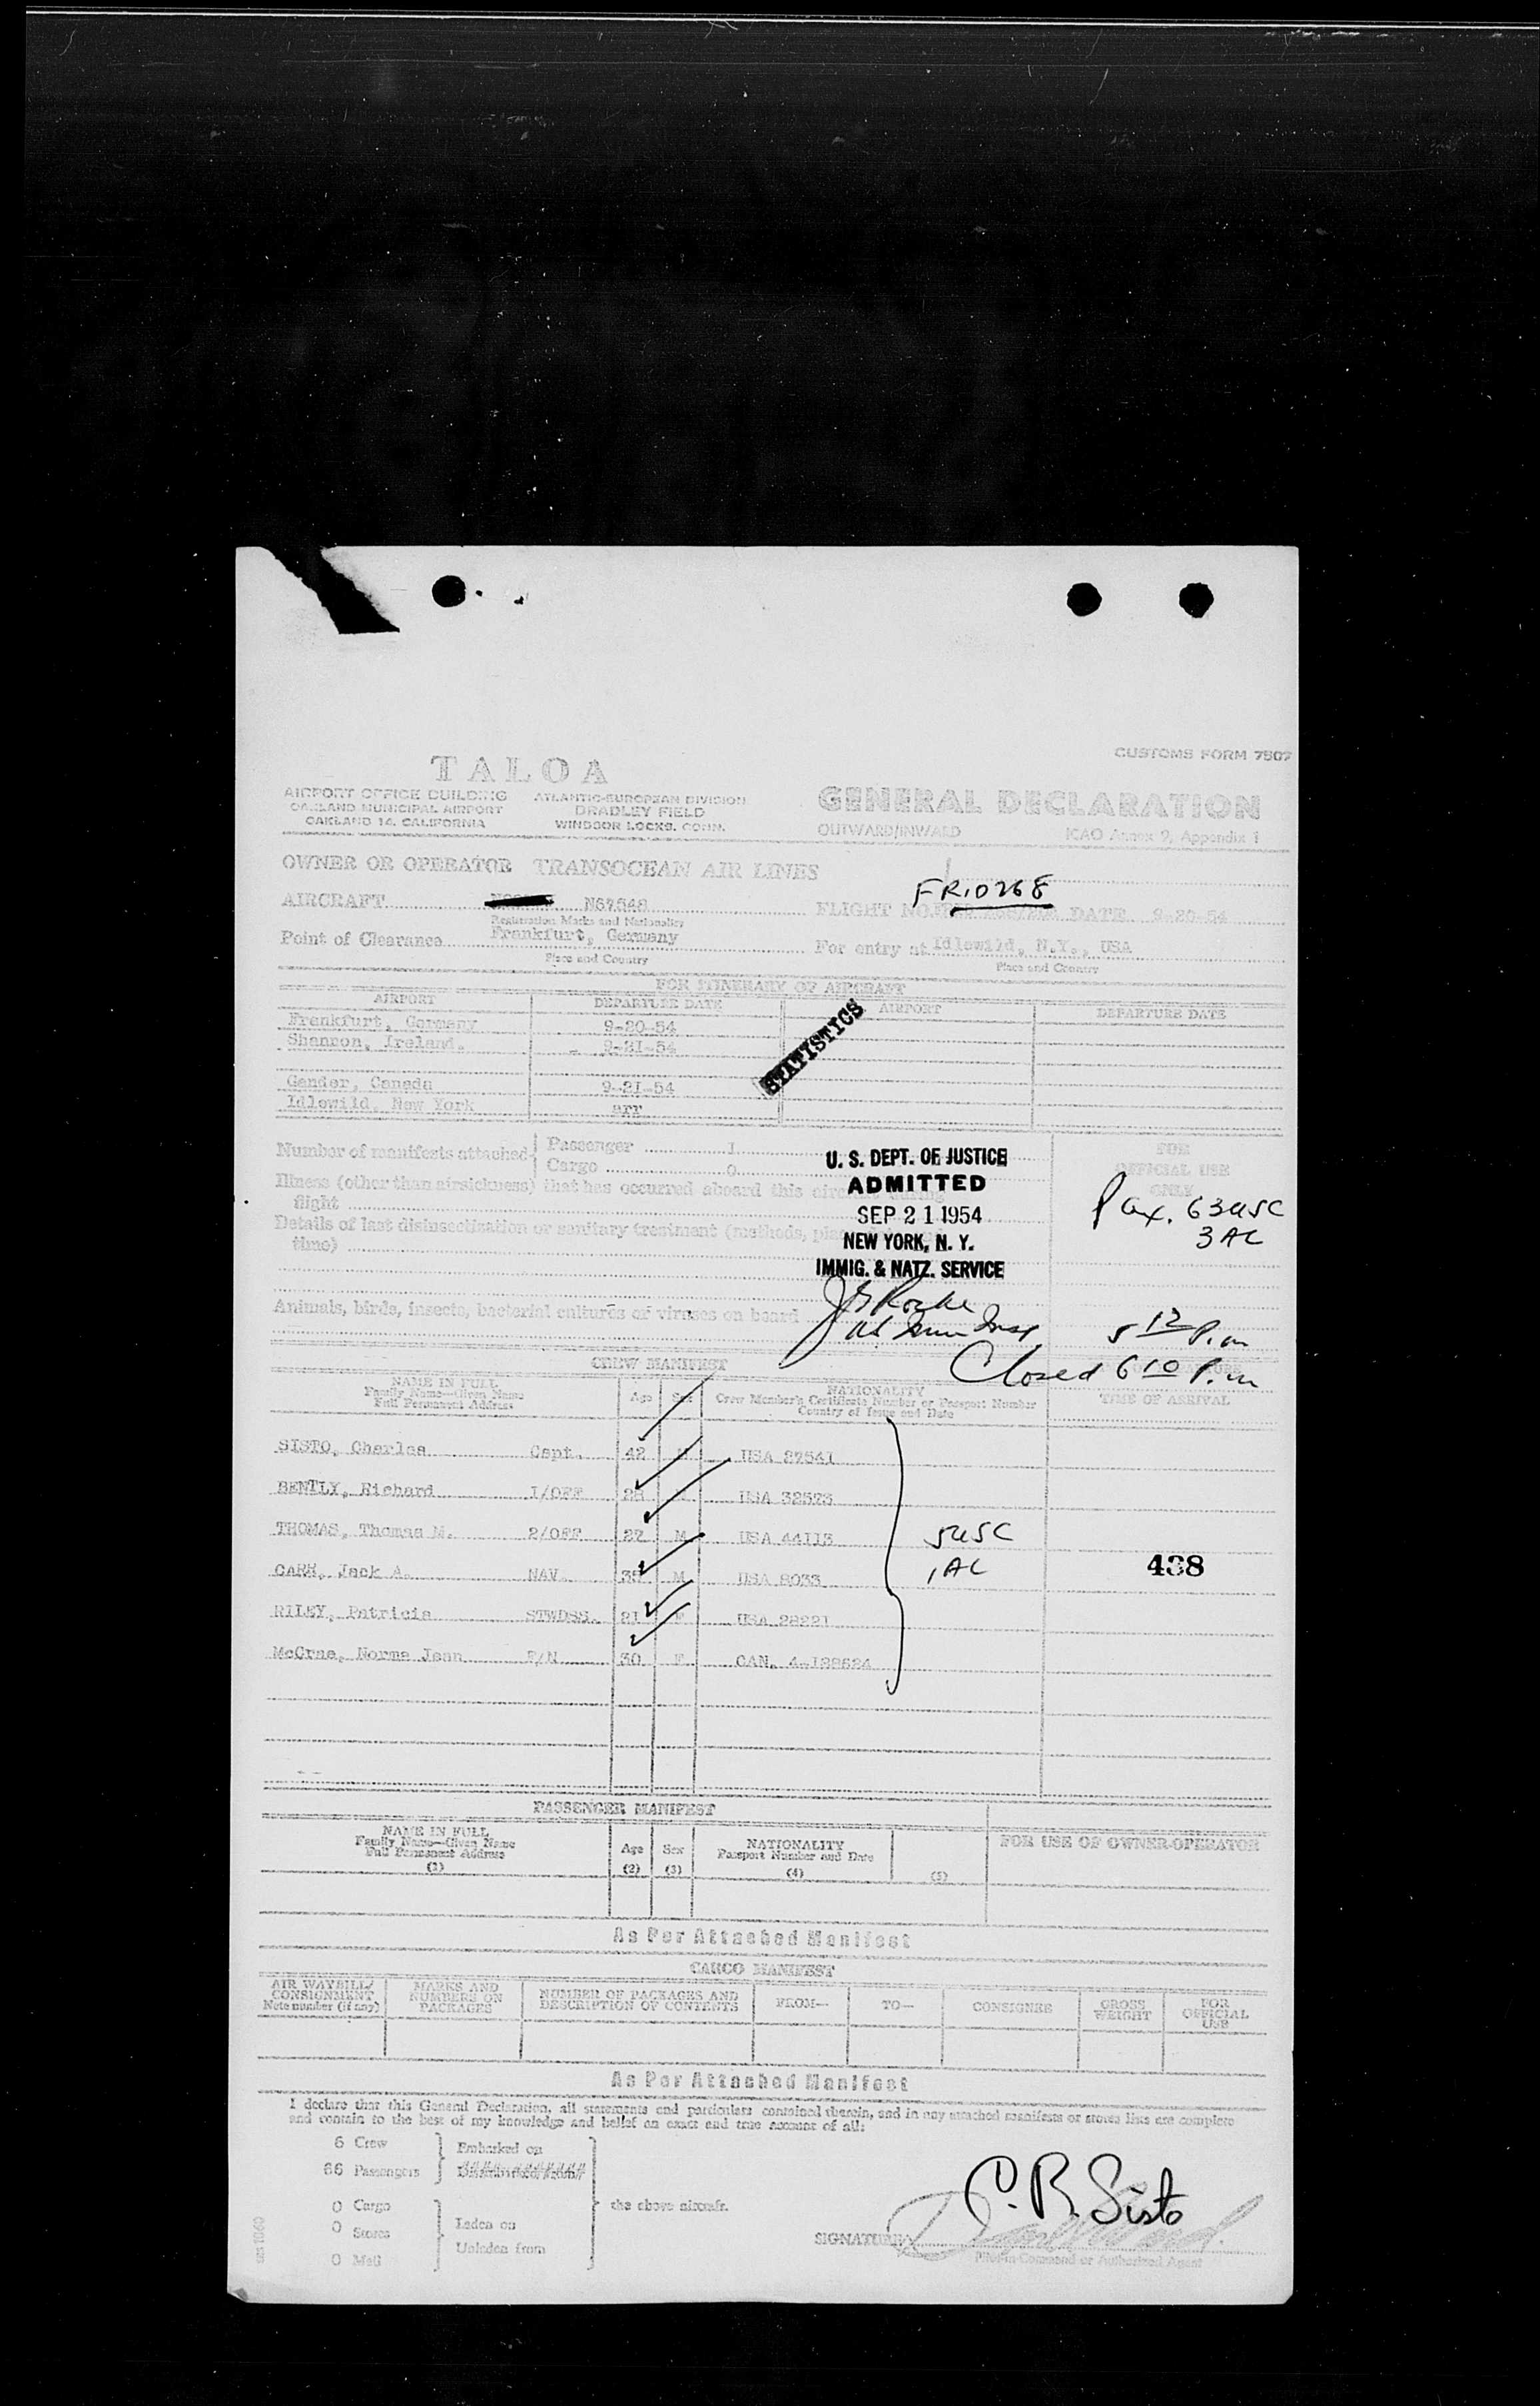 CUSTOMS FORM 7507
TALOA
AIRPORT OFFICE BUILDING
OAKLAND MUNICIPAL AIRPORT
OAKLAND 14, CALIFORNIA
ATLANTIC-EUROPEAN DIVISION
BRADLEY FIELD
WINDSOR LOCKS, CONN.
GENERAL DECLARATION
OUTWARD/INWARD ICAO Annex 9, Appendix 1
OWNER OR OPERATOR TRANSOCEAN AIR LINES
FR10268
AIRCRAFT N67548 FLIGHT NO. DATE 9-20-54
Registration Marks and Nationality
Point of Clearance Frankfurt, Germany For entry at Idlewild, N.Y., USA
Place and Country Place and Country
FOR ITINERARY OF AIRCRAFT
AIRPORT DEPARTURE DATE AIRPORT DEPARTURE DATE
Frankfurt, Germany 9-20-54
Shannon, Ireland. 9-21-54
STATISTICS
Gander, Canada 9-21-54
Idlewild, New York arr
Number of manifests attached Passenger 1
Cargo 0
FOR OFFICIAL USE ONLY
U. S. DEPT. OF JUSTICE
ADMITTED
SEP 21 1954
NEW YORK, N. Y.
IMMIG. & NATZ. SERVICE
Illness (other than airsickness) that has occurred aboard this aircraft during
flight
Details of last disinsectization or sanitary treatment (methods,
time)
Pax. 63 USC
3 AC
Animals, birds, insects, bacterial cultures or viruses on board
5 12 P.m
Closed 6 10 P.m
CREW MANIFEST
NAME IN FULL
Family Name—Given Name
Full Permanent Address
Age Sex
NATIONALITY
Crew Member's Certificate Number or Passport Number
Country of Issue and Date
TIME OF ARRIVAL
SISTO, Charles Capt. 42 M USA 27541
BENTLY, Richard 1/OFF 28 USA 32573
THOMAS, Thomas M. 2/OFF 27 M USA 44113
5 USC
1 AC
CARR, Jack A. NAV. 38 M USA 8033
438
RILEY, Patricia STWDSS. 21 F USA 28221
McCrae, Norma Jean F/N 30 F CAN. 4-128624
PASSENGER MANIFEST
NAME IN FULL
Family Name—Given Name
Full Permanent Address
(1)
Age (2) Sex (3)
NATIONALITY
Passport Number and Date
(4) (5)
FOR USE OF OWNER-OPERATOR
As Per Attached Manifest
CARGO MANIFEST
AIR WAYBILL/ CONSIGNMENT Note number (if any)
MARKS AND NUMBERS ON PACKAGES
NUMBER OF PACKAGES AND DESCRIPTION OF CONTENTS
FROM— TO— CONSIGNEE GROSS WEIGHT FOR OFFICIAL USE
As Per Attached Manifest
I declare that this General Declaration, all statements and particulars contained therein, and in any attached manifests or stores lists are complete
and contain to the best of my knowledge and belief an exact and true account of all:
6 Crew Embarked on
66 Passengers
0 Cargo the above aircraft.
0 Stores Laden on
0 Mail Unladen from
C. R. Sisto
SIGNATURE
Pilot-in-Command or Authorized Agent